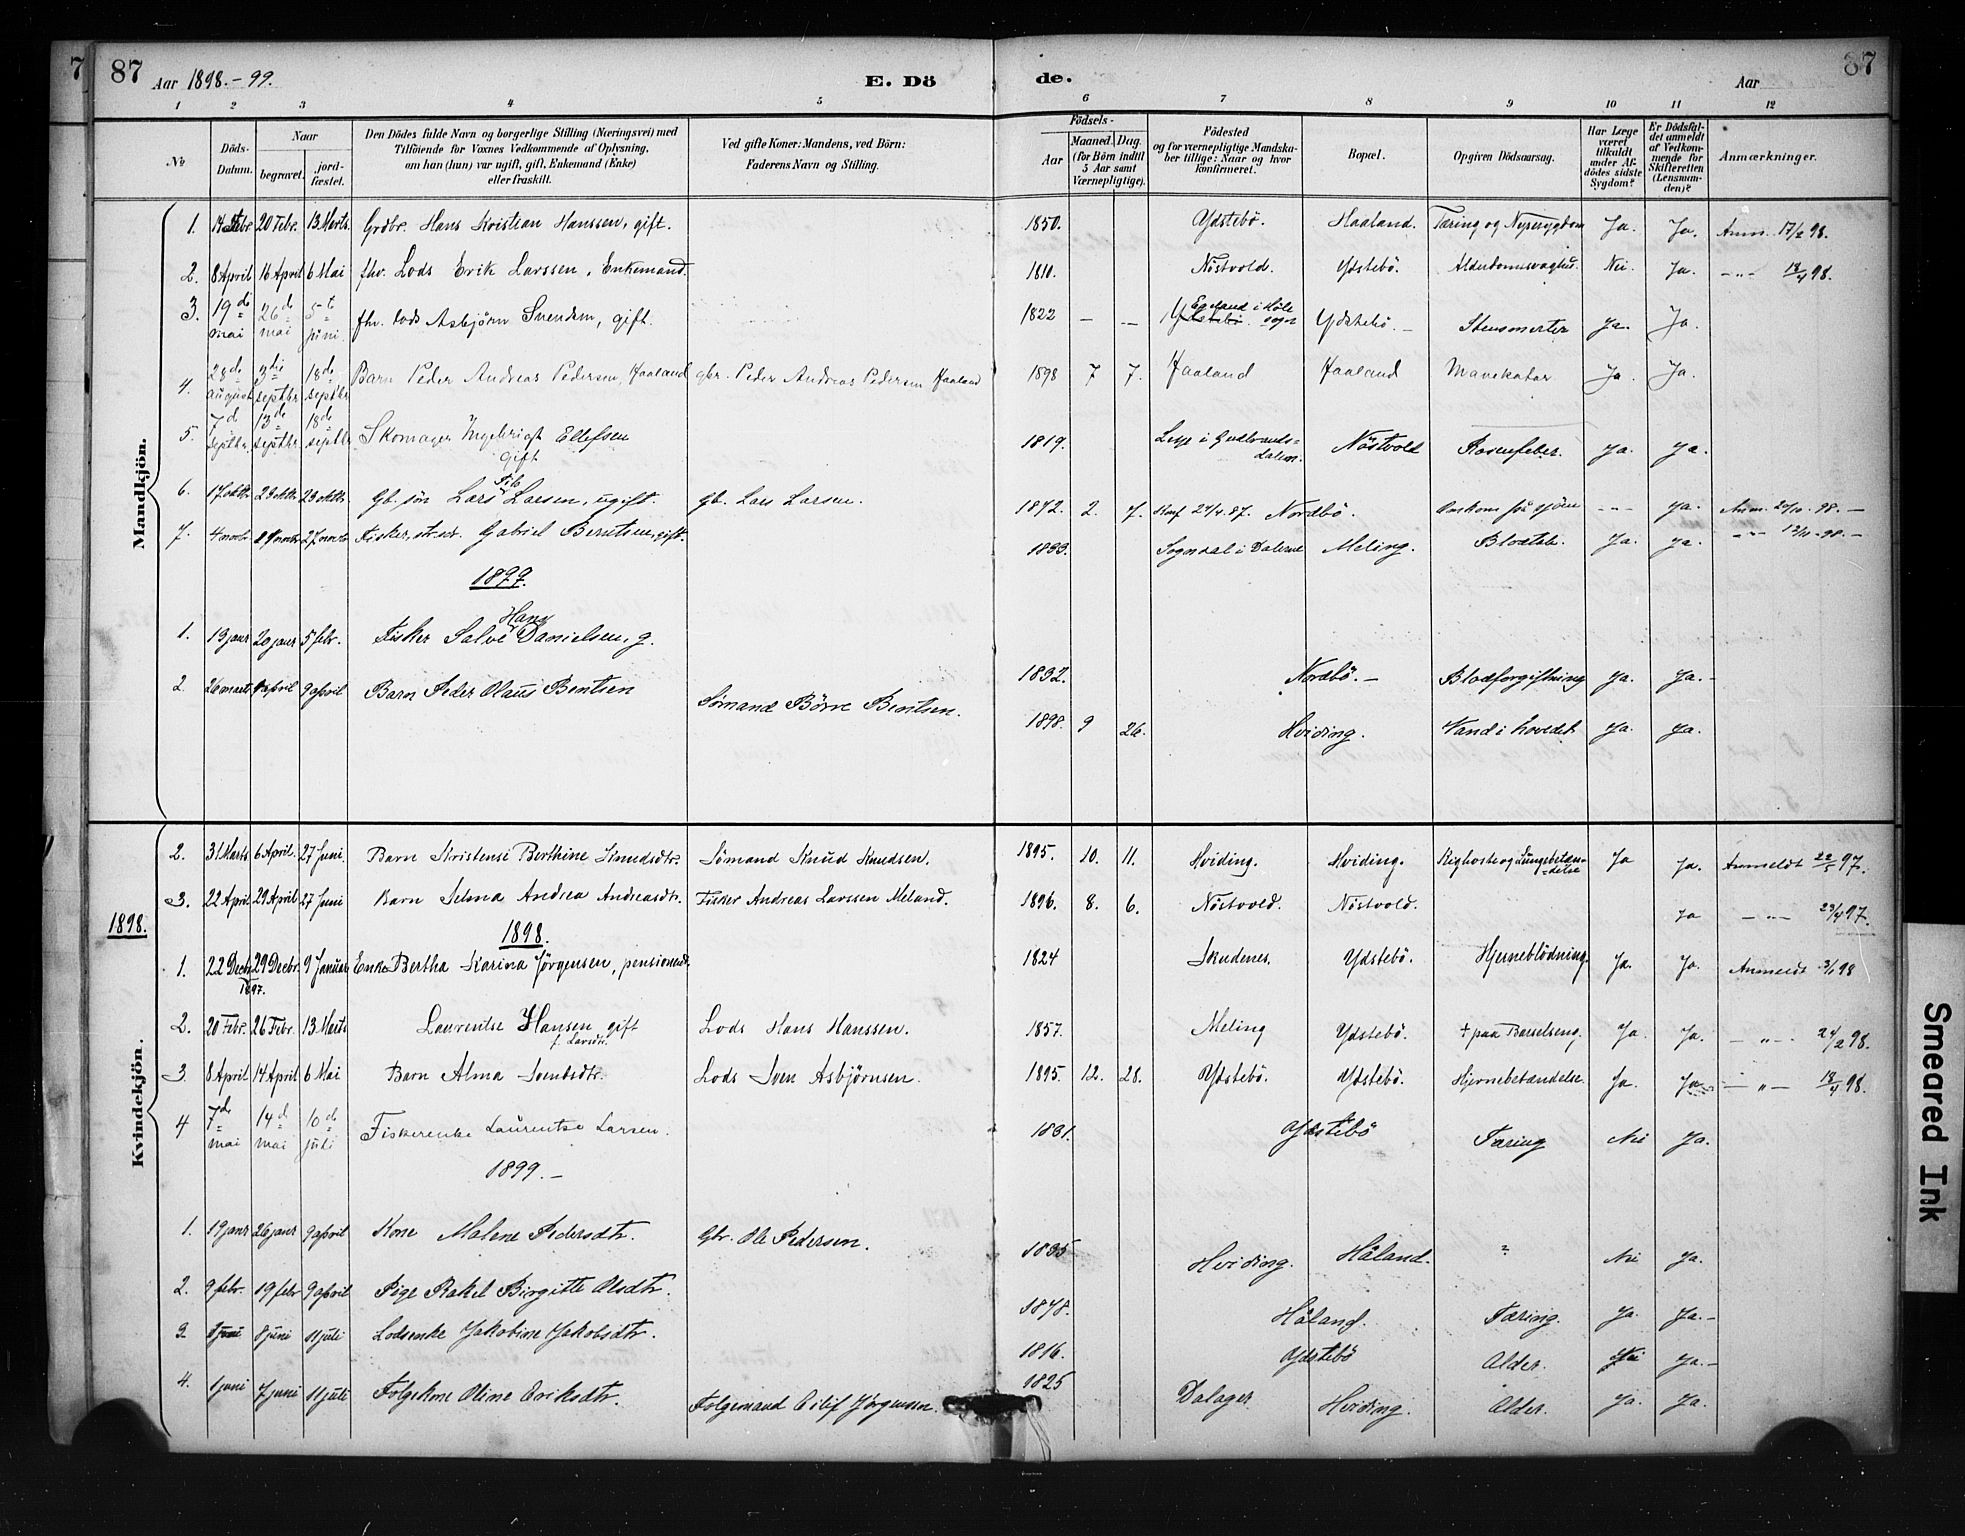 7 87 Aar 1898.-99. E. Dö de. Aar 87
1 2 3 4 5 6 7 8 9 10 11 12
№ Döds-Datum. Naar begravet. jordfæstet. Den Dödes fulde Navn og borgerlige Stilling (Næringsvei) med Tilföiende for Voxnes Vedkommende af Oplysning, om han (hun) var ugift, gift, Enkemand (Enke) eller fraskilt. Ved gifte Koner: Mandens, ved Börn: Faderens Navn og Stilling. Födsels- Aar Maaned. Dag. (for Börn indtil 5 Aar samt Værnepligtige). Födested og for værnepligtige Mandskaber tillige: Naar og hvor konfirmeret. Bopæl. Opgiven Dödsaarsag. Har Læge været tilkaldt under Afdödes sidste Sygdom? Er Dödsfaldet anmeldt af Vedkommende for Skifteretten (Lensmanden)? Anmærkninger.
Mandkjön.
1. 14 Febr. 20 Febr. 13 Marts. Grdbr. Hans Kristian Hanssen, gift. 1850. Ydstebö. Haaland. Tæring og Nyresygdom Ja. Ja. Anm. 17/2 98.
2. 8 April 16 April 6 Mai fhv. Lods Erik Larssen, Enkemand. 1810. Nöstvold. Ydstebö. Alderdomssvaghed. Nei. Ja. -"- 18/4 98.
3. 19de mai 26de mai 5t juni fhv. lods Asbjörn Svendsen, gift. 1822 — — Ydstebö Egeland i Höle sogn Ydstebö. – Stensmerter Ja. Ja.
4. 28de august 3die septbr 18de septbr Barn Peder Andreas Pedersen, Haaland gbr. Peder Andreas Pedersen Haaland 1898 7 7. Haaland Haaland Mavekatar Ja. Ja.
5. 7d septbr. 13de septbr 18de septbr Skomager Ingebrigt Ellefsen gift 1819. Lesje i Gudbrandsdalen. Nöstvold Rosenfeber. Ja. Ja.
6. 17 oktbr. 23 oktbr. 23 oktbr. Gb. sön Lars Larsen, ugift. gb. Lars Larsen. 1872. 2. 7. Konf 24/4.87. Nordbö. Omkom på sjöen -"- Ja. Anm. 20/10-98.–
7. 4 novbr. novbr 27 novbr Fisker, Gabriel Berntsen, gift. 1833. Sogndal i Dalerne Meling. Ja. Ja. -"- 12/11-98.–
1899.
1. 19 janr 20 janr 5 febr. Fisker Salve Hans Danielsen, g. 1832. Nordbö. – Blodforgiftning Ja. Ja. –
2. 26 marts april 9 april Barn Peder Olaus Bentsen Sömand Börre Bentsen. 1898. 9 26. Hviding. Vand i hovedet Ja. Ja.
Kvindekjön.
2. 31 Marts 6 April. 27 Juni. Barn Kristense Berthine Knudsdtr. Sömand Knud Knudsen. 1895. 10. 11. Hviding. Hviding. Kighoste og Lungebetændelse Ja Ja. Anmeldt 22/5 97.
3. 22 April 29 April 27 Juni Barn Selma Andrea Andreasdtr. Fisker Andreas Larssen Meland. 1896. 8. 6. Nöstvold. Nöstvold. Ja -"- 23/4 97.
1898. 1898.
1. 22 Decbr. 1897. 29 Decbr. 9 Januar Enke Bertha Karina Jörgensen, pensionered. 1824 Skudenes. Ydstebö. Hjerneblödning. Ja. Ja. Anmeldt 3/1 98
2. 20 Febr. 26 Febr. 13 Marts Laurentse Hansen gift f. Larsdtr. Lods Hans Hanssen. 1857. Meling Ydstebö. + paa Barselseng. Ja Ja. -"- 24/2 98.
3. 8 April 14 April 6 Mai Barn Alma Svendsdtr. Lods Sven Asbjörnsen. 1895. 12. 28. Ydstebö. Ydstebö. Hjernebetændelse. Ja. Ja -"- 18/4 98.
4 7de mai 14d mai 10de juli Fiskerenke Laurentse Larsen. 1831. Ydstebö Tæring Nei Ja.
1899.–
1. 19 janr 26 janr 9 april Kone Malene Pedersdtr. Gbr. Ole Pedersen. 1835 Hviding. Håland. ? Nei Ja.
2. 9 febr. 19 febr 9 april Pige Rakel Birgitte Olsdtr. 1848. Håland. Tæring. Ja. Ja.–
3. juni 8 juni 11 juli Lodsenke Jakobine Jakobsdtr. 1816. Ydstebö Alder. Nei Ja.–
4. 1 juni 7 juni 11 juli Folgekone Oline Eriksdtr. Folgemand Eilif Jörgensen. 1825 Dalager. Hviding. Alder. Ja. Ja.
Smeared Ink